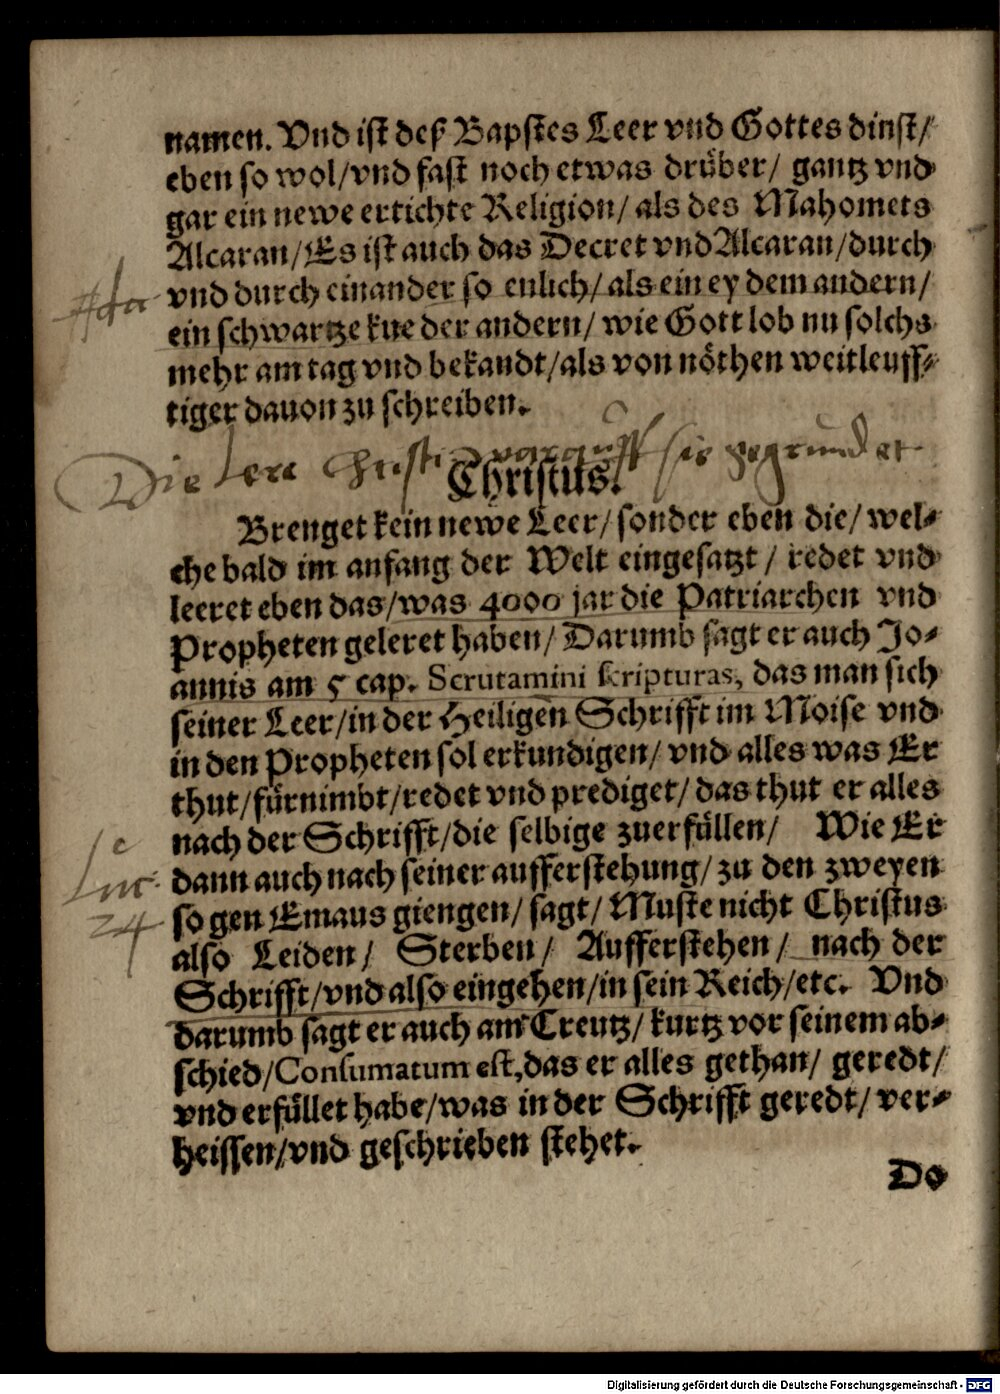 namen. Vnd ist deß Bapstes Leer vnd Gottes dinst/
eben so wol/vnd fast noch etwas drüber/ gantz vnd
gar ein newe ertichte Religion/ als des Mahomets
Alcaran/Es ist auch das Decret vnd Alcaran/durch
vnd durch einander so enlich/ als ein ey dem andern/
ein schwartze kue der andern/ wie Gott lob nu solchs
mehr am tag vnd bekandt/als von nöthen weitleuff-
tiger dauon zu schreiben.
Die Lere Christi worauff sie gegrundet
Christus.
Brenget kein newe Leer/ sonder eben die/ wel-
che bald im anfang der Welt eingesatzt / redet vnd
leeret eben das/was 4000 jar die Patriarchen vnd
Propheten geleret haben/ Darumb sagt er auch Jo-
annis am 5 cap. Scrutamini scripturas, das man sich
seiner Leer/in der Heiligen Schrifft im Moise vnd
in den Propheten sol erkundigen/ vnd alles was Er
thut/fürnimbt/redet vnd prediget/ das thut er alles
nach der Schrifft/die selbige zuerfüllen/ Wie Er
Luc.
dann auch nach seiner aufferstehung/ zu den zweyen
24
so gen Emaus giengen/ sagt/ Muste nicht Christus
also Leiden/ Sterben/ Aufferstehen/ nach der
Schrifft/vnd also eingehen/in sein Reich/etc. Vnd
darumb sagt er auch am Creutz/ kurtz vor seinem ab-
schied/Consumatum est,das er alles gethan/ geredt/
vnd erfüllet habe/was in der Schrifft geredt/ ver-
heissen/vnd geschrieben stehet.
Do
Digitalisierung gefördert durch die Deutsche Forschungsgemeinschaft - DFG